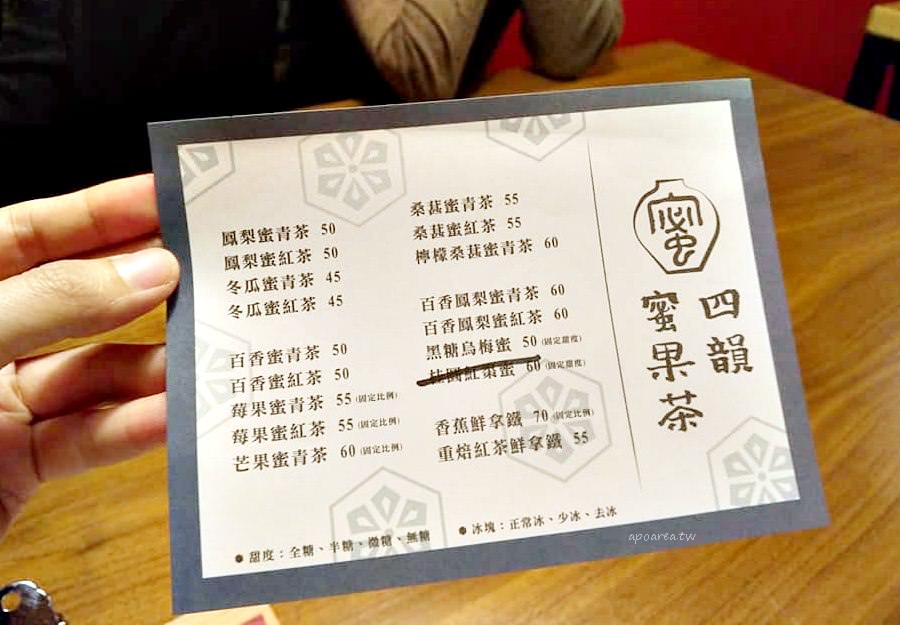 鳳梨蜜青茶 50
鳳梨蜜紅茶 50
冬瓜蜜青茶 45
冬瓜蜜紅茶 45
百香蜜青茶 50
百香蜜紅茶 50
莓果蜜青茶 55 (固定比例)
莓果蜜紅茶 55 (固定比例)
芒果蜜青茶 60 (固定比例)
桑葚蜜青茶 55
桑葚蜜紅茶 55
檸檬桑葚蜜青茶 60
百香鳳梨蜜青茶 60
百香鳳梨蜜紅茶 60
黑糖烏梅蜜 50 (固定甜度)
桂圓紅棗蜜 60 (固定甜度)
香蕉鮮拿鐵 70 (固定比例)
重焙紅茶鮮拿鐵 55
● 甜度：全糖、半糖、微糖、無糖
● 冰塊：正常冰、少冰、去冰
蜜
四韻
蜜果茶
apoarea.tw